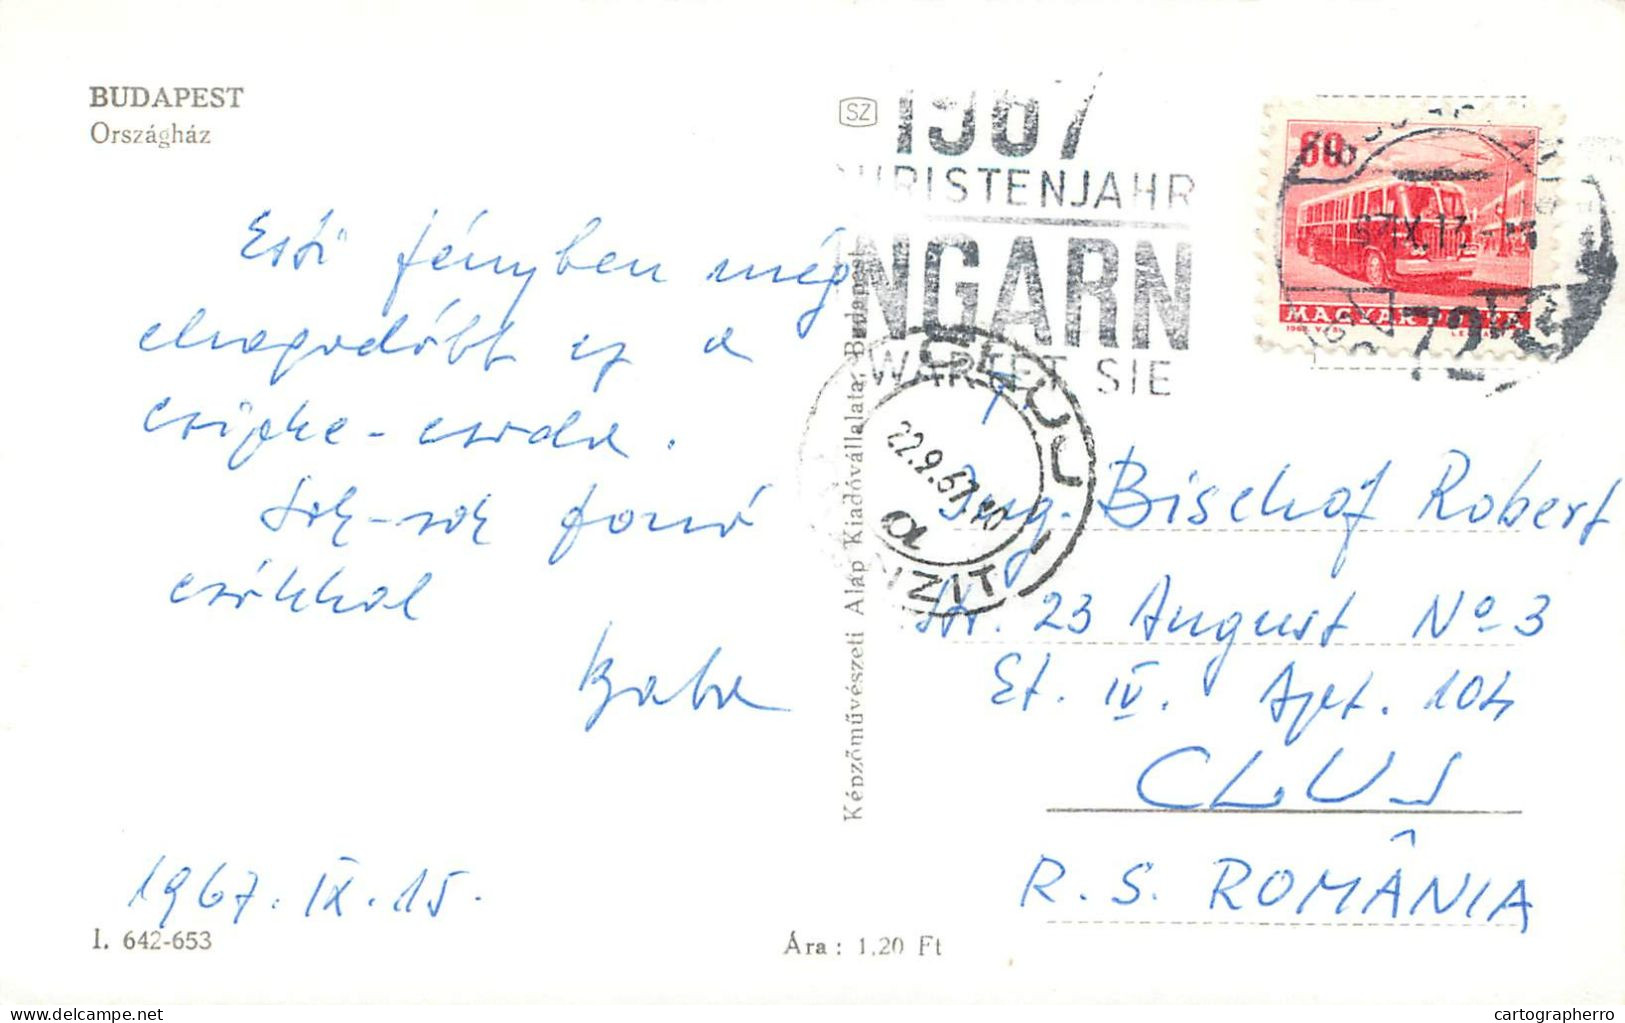 BUDAPEST
Országház
SZ
1967
URISTENJAHR
NGARN
WARTET SIE
60
MAGYAR POSTA
72
Esti fényben még
elragadóbb ez a
csipke-csoda.
Sok-sok forró
csókkal
Baba
1967. IX. 15.
I. 642-653
Ára: 1,20 Ft
Képzőművészeti Alap Kiadóvállalata, Budapest
CLUJ
22.9.67 10
a
Ing. Bischof Robert
Str. 23 August No 3
Et. IV. Apt. 104
CLUJ
R. S. ROMÂNIA
cartographerro